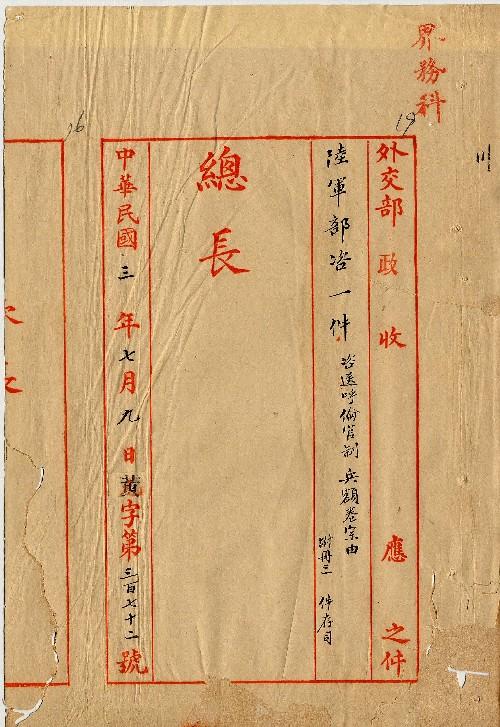 界務科
19
外交部政收應之件
陸軍部咨一件 咨送呼倫官制兵額卷宗由
附冊三件存司
總長
中華民國三年七月九日黃字第三百七十二號
16
次